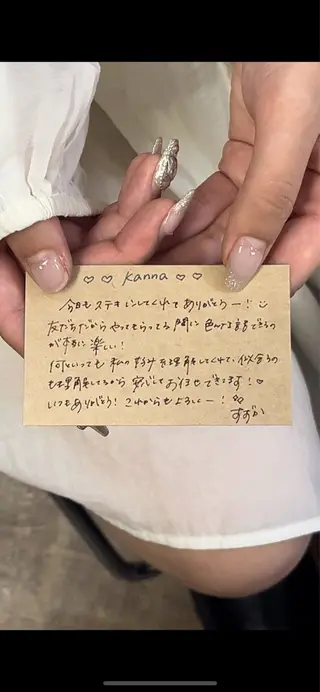 ♡ ♡ Kanna ♡ ♡
今日もステキにしてくれてありがとうー!
友だちだからやってもらってる間に色んな話できるの
が本当に楽しい!
何といっても私の好みを理解してくれて、似合うの
も理解してるから安心してお任せできてます!♡
いつもありがとう!これからもよろしくー!♡
すずか